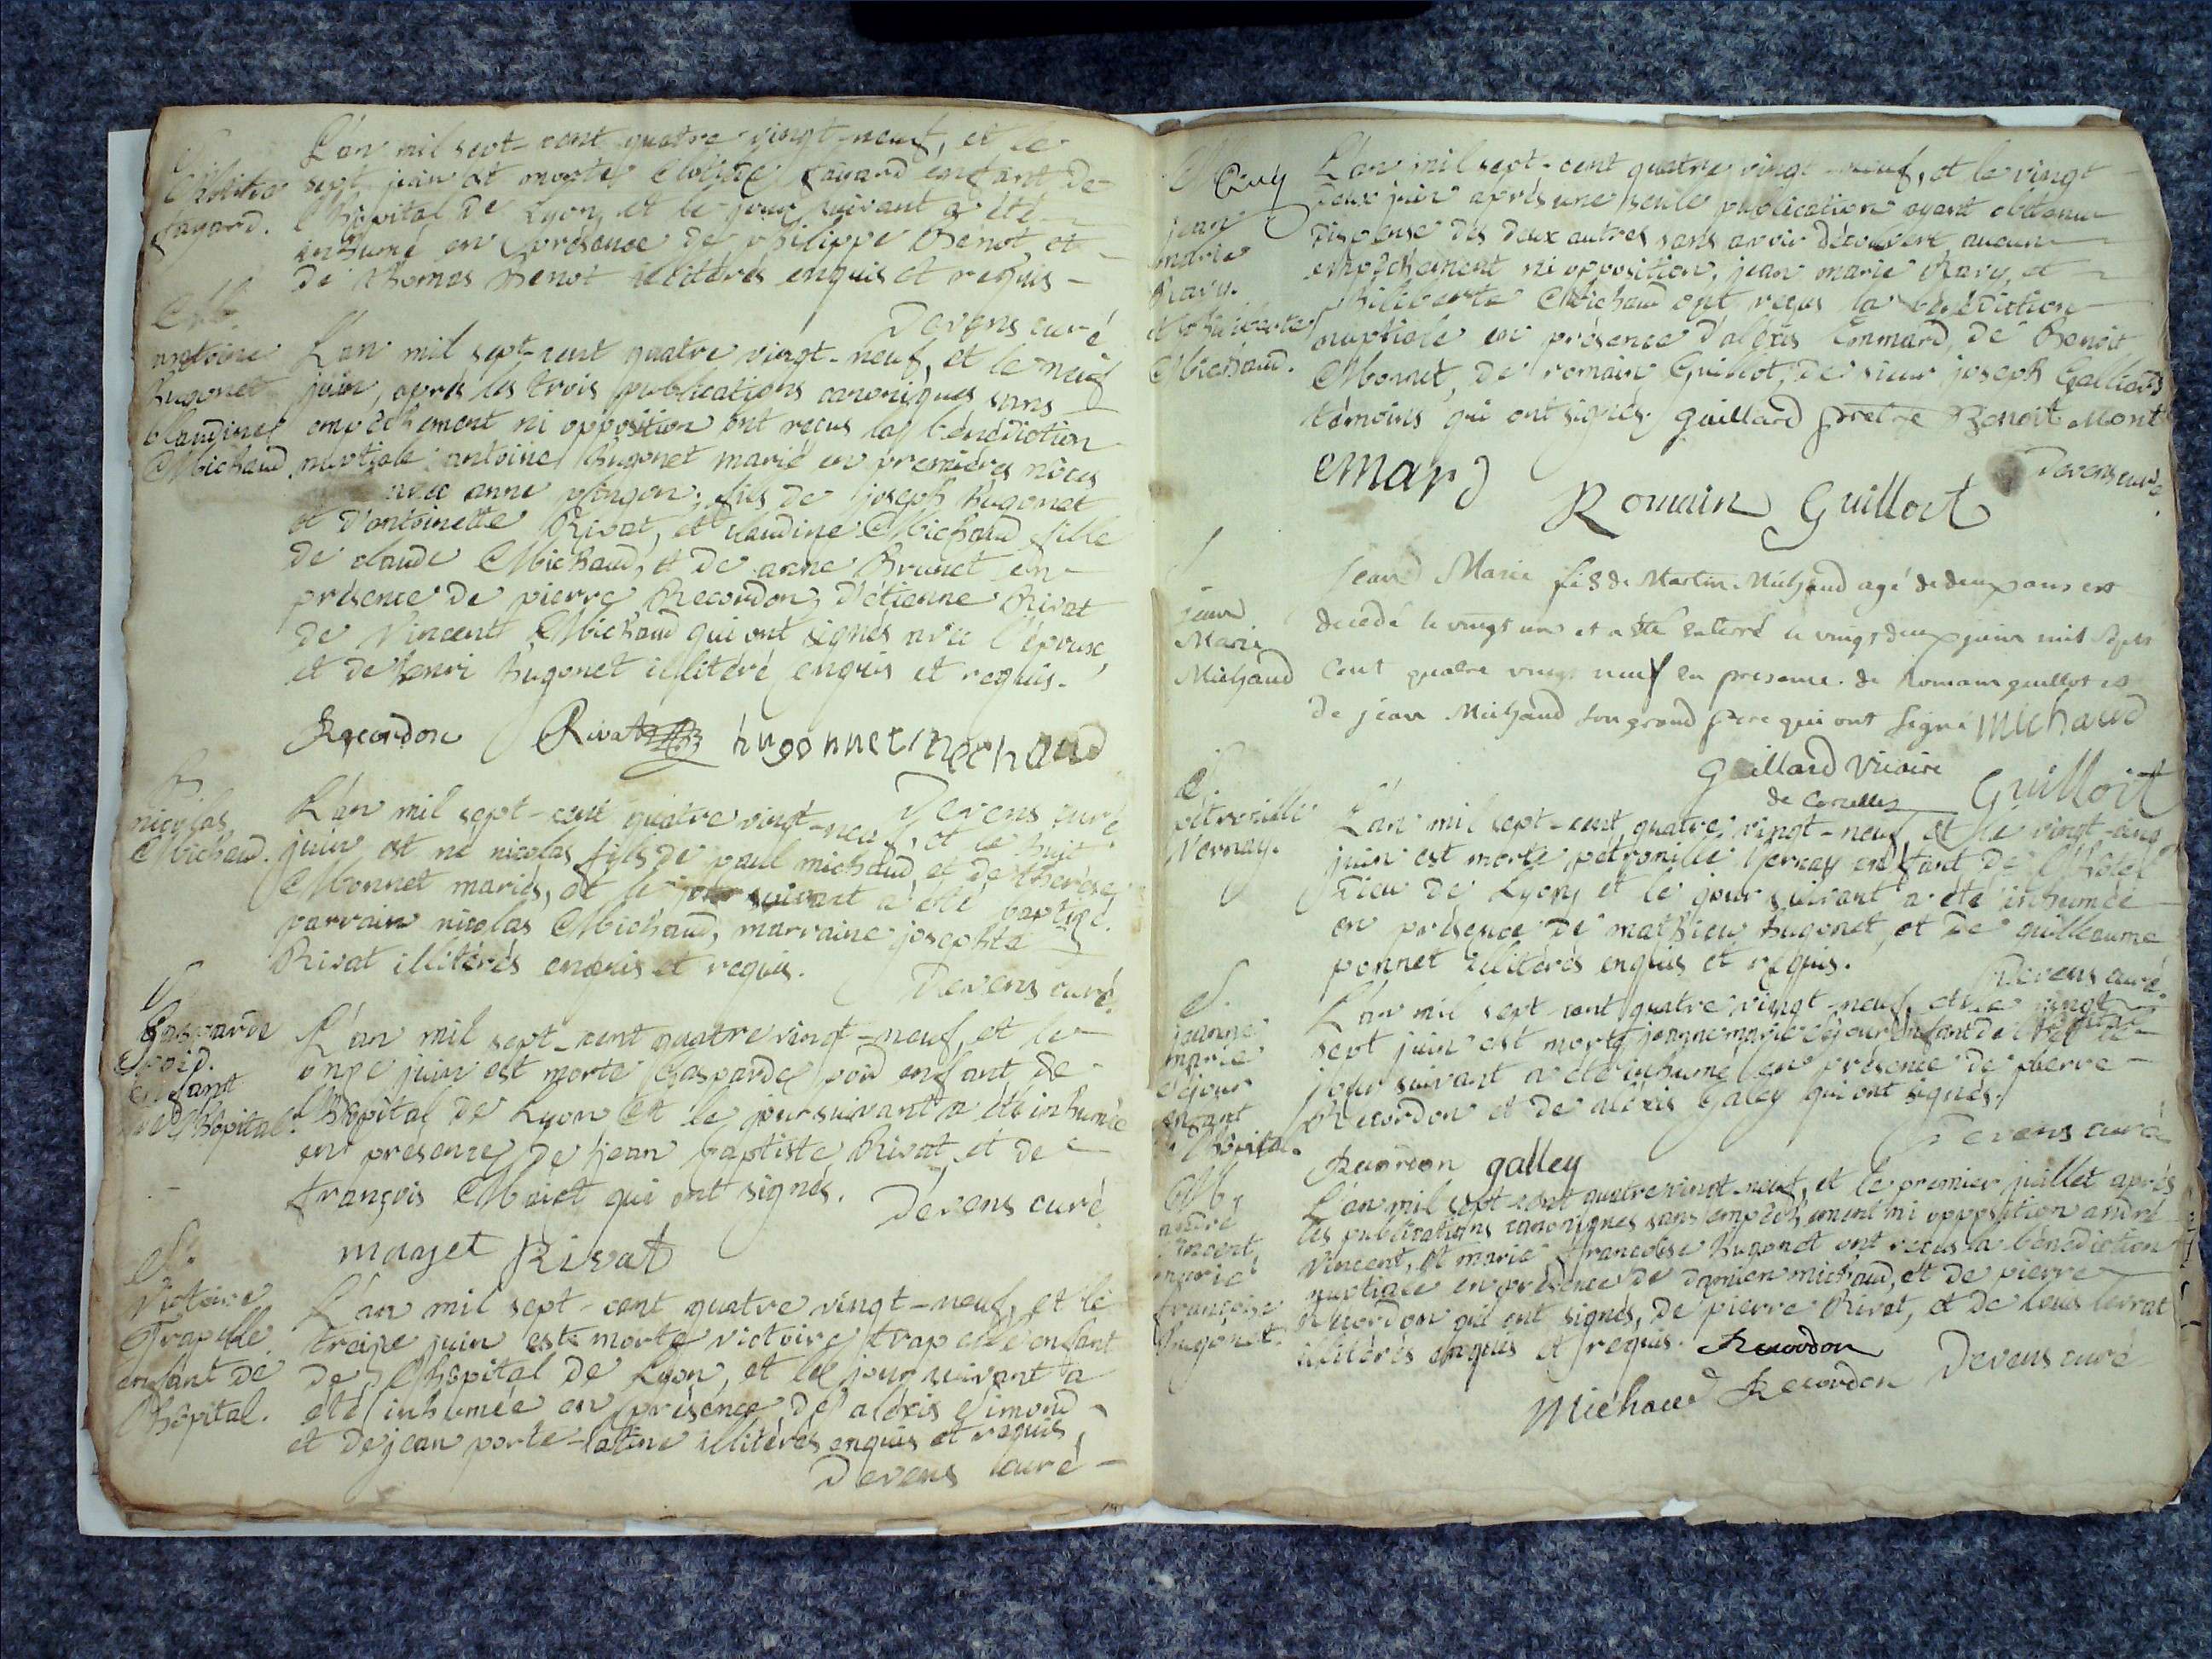 L'an mil sept-cent quatre vingt-neuf, et le
sept juin est morte fayard enfant de
l'hôpital de Lyon, et le jour suivant a été
inhumé en présence de philippe Benot, et
de thomas Benot illitérés enquis et requis-
Devens curé
fayard.
M.
antoine
hugonet
claudine
Michaud
L'an mil sept-cent quatre vingt-neuf, et le neuf
juin, après les trois publications canoniques sans
empêchement ni opposition ont reçus la bénédiction
nuptiale antoine hugonet marié en premières nôces
avec anne pinson, fils de joseph hugonet
et d'antoinette Rivat, et claudine Michaud fille
de claude Michaud, et de anne Brunet en
présence de pierre Recordon, d'étienne Rivat
de Vincent Michaud qui ont signés avec l'épouse,
et de henri hugonet illitéré enquis et requis.
Recordon Rivat hugonnet Mechaud
Devens curé
B
nicolas
Michaud.
L'an mil sept-cent quatre vingt-neuf, et le huit
juin est né nicolas fils de paul michaud et de thérèse
Monnet mariés, et le jour suivant a été baptisé.
parrain nicolas Michaud, marraine josephte
Rivat illitérés enquis et requis.
Devens curé.
S
Gasparde
enfant
de l'hôpital.
L'an mil sept-cent quatre vingt-neuf, et le
onze juin est morte Gasparde enfant de
l'hôpital de Lyon et le jour suivant a été inhumée
en présence de jean baptiste Rivat, et de
françois Maiet qui ont signés.
Devens curé.
mayet Rivat
S.
Victoire
Trapelle.
enfant de
l'hôpital.
L'an mil sept-cent quatre vingt-neuf, et le
treize juin est morte victoire trapelle enfant
de l'hôpital de Lyon, et le jour suivant a
été inhumée en présence de aléxis Simond
et de jean porte-latine illitérés enquis et requis
Devens curé-
M
jean
marie
Ravy.
et philiberte
Michaud.
L'an mil sept-cent quatre vingt-neuf, et le vingt
deux juin après une seule publication ayant obtenu
dispense des deux autres sans avoir découvert aucun
empêchement ni opposition, jean marie Ravy, et
philiberte Michaud ont reçus la bénédiction
nuptiale en présence d'aléxis Emmard, de Benoît
Monnet, de romain Guillot, de sieur joseph Galliard
témoins qui ont signés. Guillard prêtre Benoit Mont
emard
Devens curé.
Romain Guilloit
S
jean
Marie
Michaud
Jean Marie fils de Martin Michaud agé de deux ans est
decedé le vingt un et a été enterré le vingt deux juin mil sept
cent quatre vingt neuf en presence de Romain guillot et
de jean Michaud son grand pere qui ont signé Michaud
Gaillard Vicaire
de Corcelles
Guilloit
S.
pétronille
Vernay.
L'an mil sept-cent quatre vingt-neuf, et le vingt-cinq
juin est morte pétronille Vernay enfant de l'hôtel
Dieu de Lyon, et le jour suivant a été inhumée
en présence de mathieu hugonet, et de guilleaume
ponnet illitérés enquis et requis.
Devens curé.
S.
jeanne
marie
Séjour
enfant
de l'hôpital.
L'an mil sept-cent quatre vingt-neuf, et le vingt
sept juin est morte jeanne marie Séjour enfant de
jour suivant a été inhumé en présence de pierre
Recordon et de aléxis Galey qui ont signés.
Devens curé
Recordon galley
M.
andré
Vincent,
marie
françoise
hugonet.
L'an mil sept-cent quatre vingt-neuf, et le premier juillet après
les publications canoniques sans empêchement ni opposition andré
Vincent, et marie françoise hugonet ont reçus la bénédiction
nuptiale en présence de damien michaud, et de pierre
Recordon qui ont signés, de pierre Rivat, et de louis levrat
illitérés enquis et requis. Recordon
Devens curé
Michaud Recordon